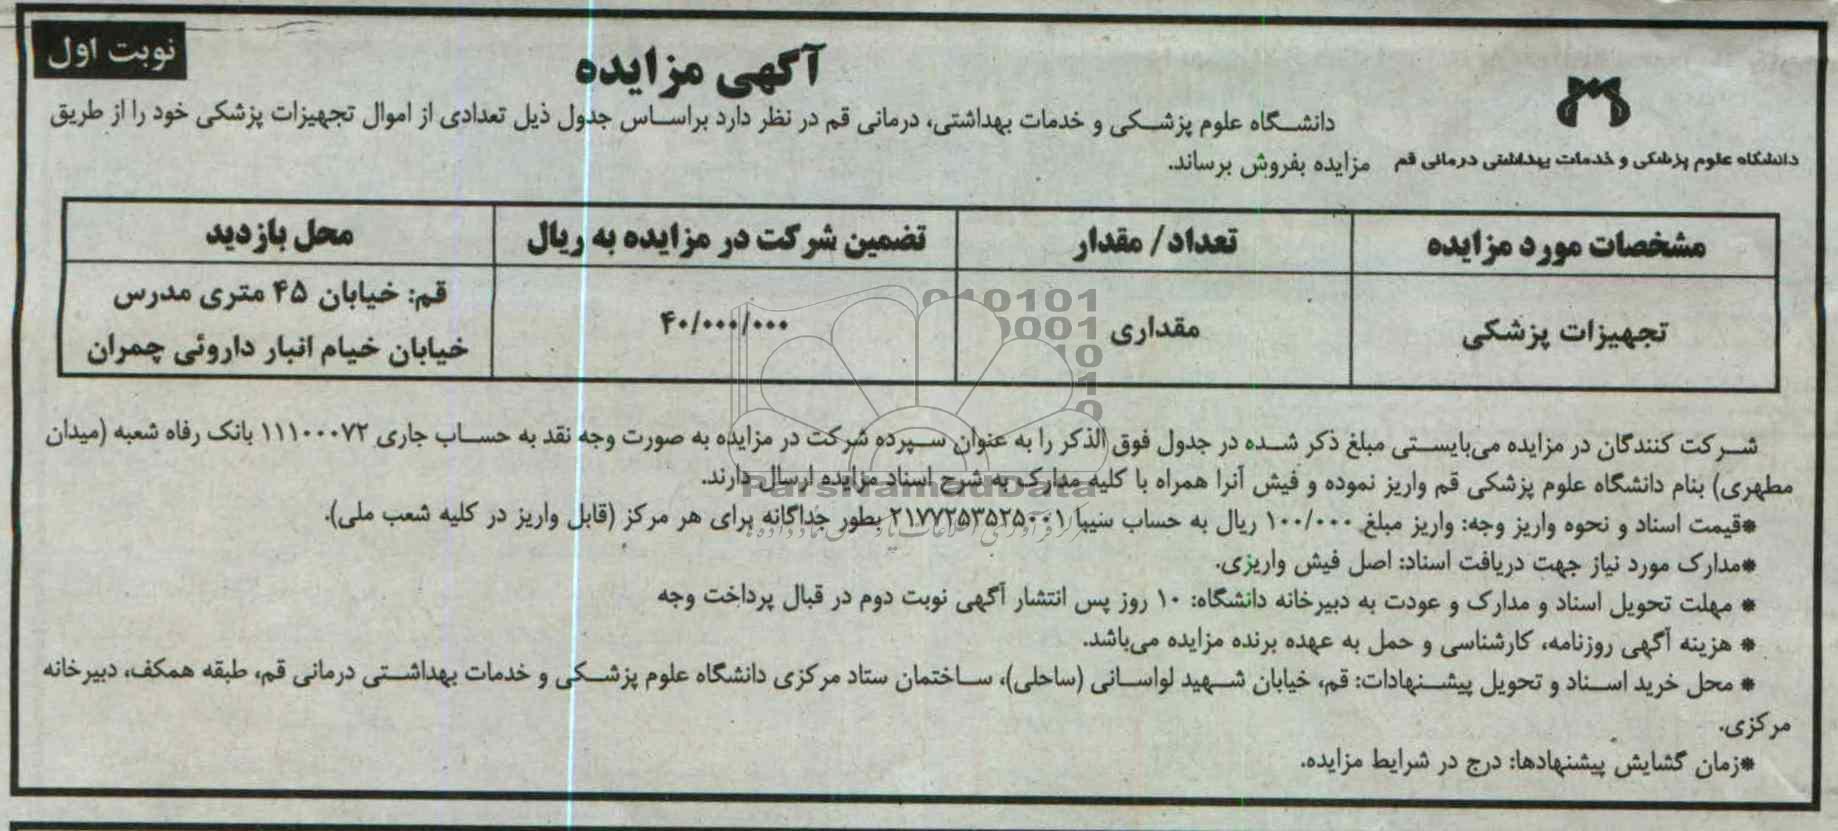 نوبت اول
آگهی مزایده
دانشگاه علوم پزشکی و خدمات بهداشتی درمانی قم
دانشگاه علوم پزشکی و خدمات بهداشتی، درمانی قم در نظر دارد براساس جدول ذیل تعدادی از اموال تجهیزات پزشکی خود را از طریق
مزایده بفروش برساند.
مشخصات مورد مزایده	تعداد/ مقدار	تضمین شرکت در مزایده به ریال	محل بازدید
تجهیزات پزشکی	مقداری	۴۰/۰۰۰/۰۰۰	قم: خیابان ۴۵ متری مدرس
خیابان خیام انبار داروئی چمران
شرکت کنندگان در مزایده می‌بایستی مبلغ ذکر شده در جدول فوق الذکر را به عنوان سپرده شرکت در مزایده به صورت وجه نقد به حساب جاری ۱۱۱۰۰۰۷۲ بانک رفاه شعبه (میدان
مطهری) بنام دانشگاه علوم پزشکی قم واریز نموده و فیش آنرا همراه با کلیه مدارک به شرح اسناد مزایده ارسال دارند.
*قیمت اسناد و نحوه واریز وجه: واریز مبلغ ۱۰۰/۰۰۰ ریال به حساب سیبا ۲۱۷۷۲۵۳۵۲۵۰۰۱ بطور جداگانه برای هر مرکز (قابل واریز در کلیه شعب ملی).
*مدارک مورد نیاز جهت دریافت اسناد: اصل فیش واریزی.
* مهلت تحویل اسناد و مدارک و عودت به دبیرخانه دانشگاه: ۱۰ روز پس انتشار آگهی نوبت دوم در قبال پرداخت وجه
* هزینه آگهی روزنامه، کارشناسی و حمل به عهده برنده مزایده می‌باشد.
* محل خرید اسناد و تحویل پیشنهادات: قم، خیابان شهید لواسانی (ساحلی)، ساختمان ستاد مرکزی دانشگاه علوم پزشکی و خدمات بهداشتی درمانی قم، طبقه همکف، دبیرخانه
مرکزی.
*زمان گشایش پیشنهادها: درج در شرایط مزایده.
ParsNamadData